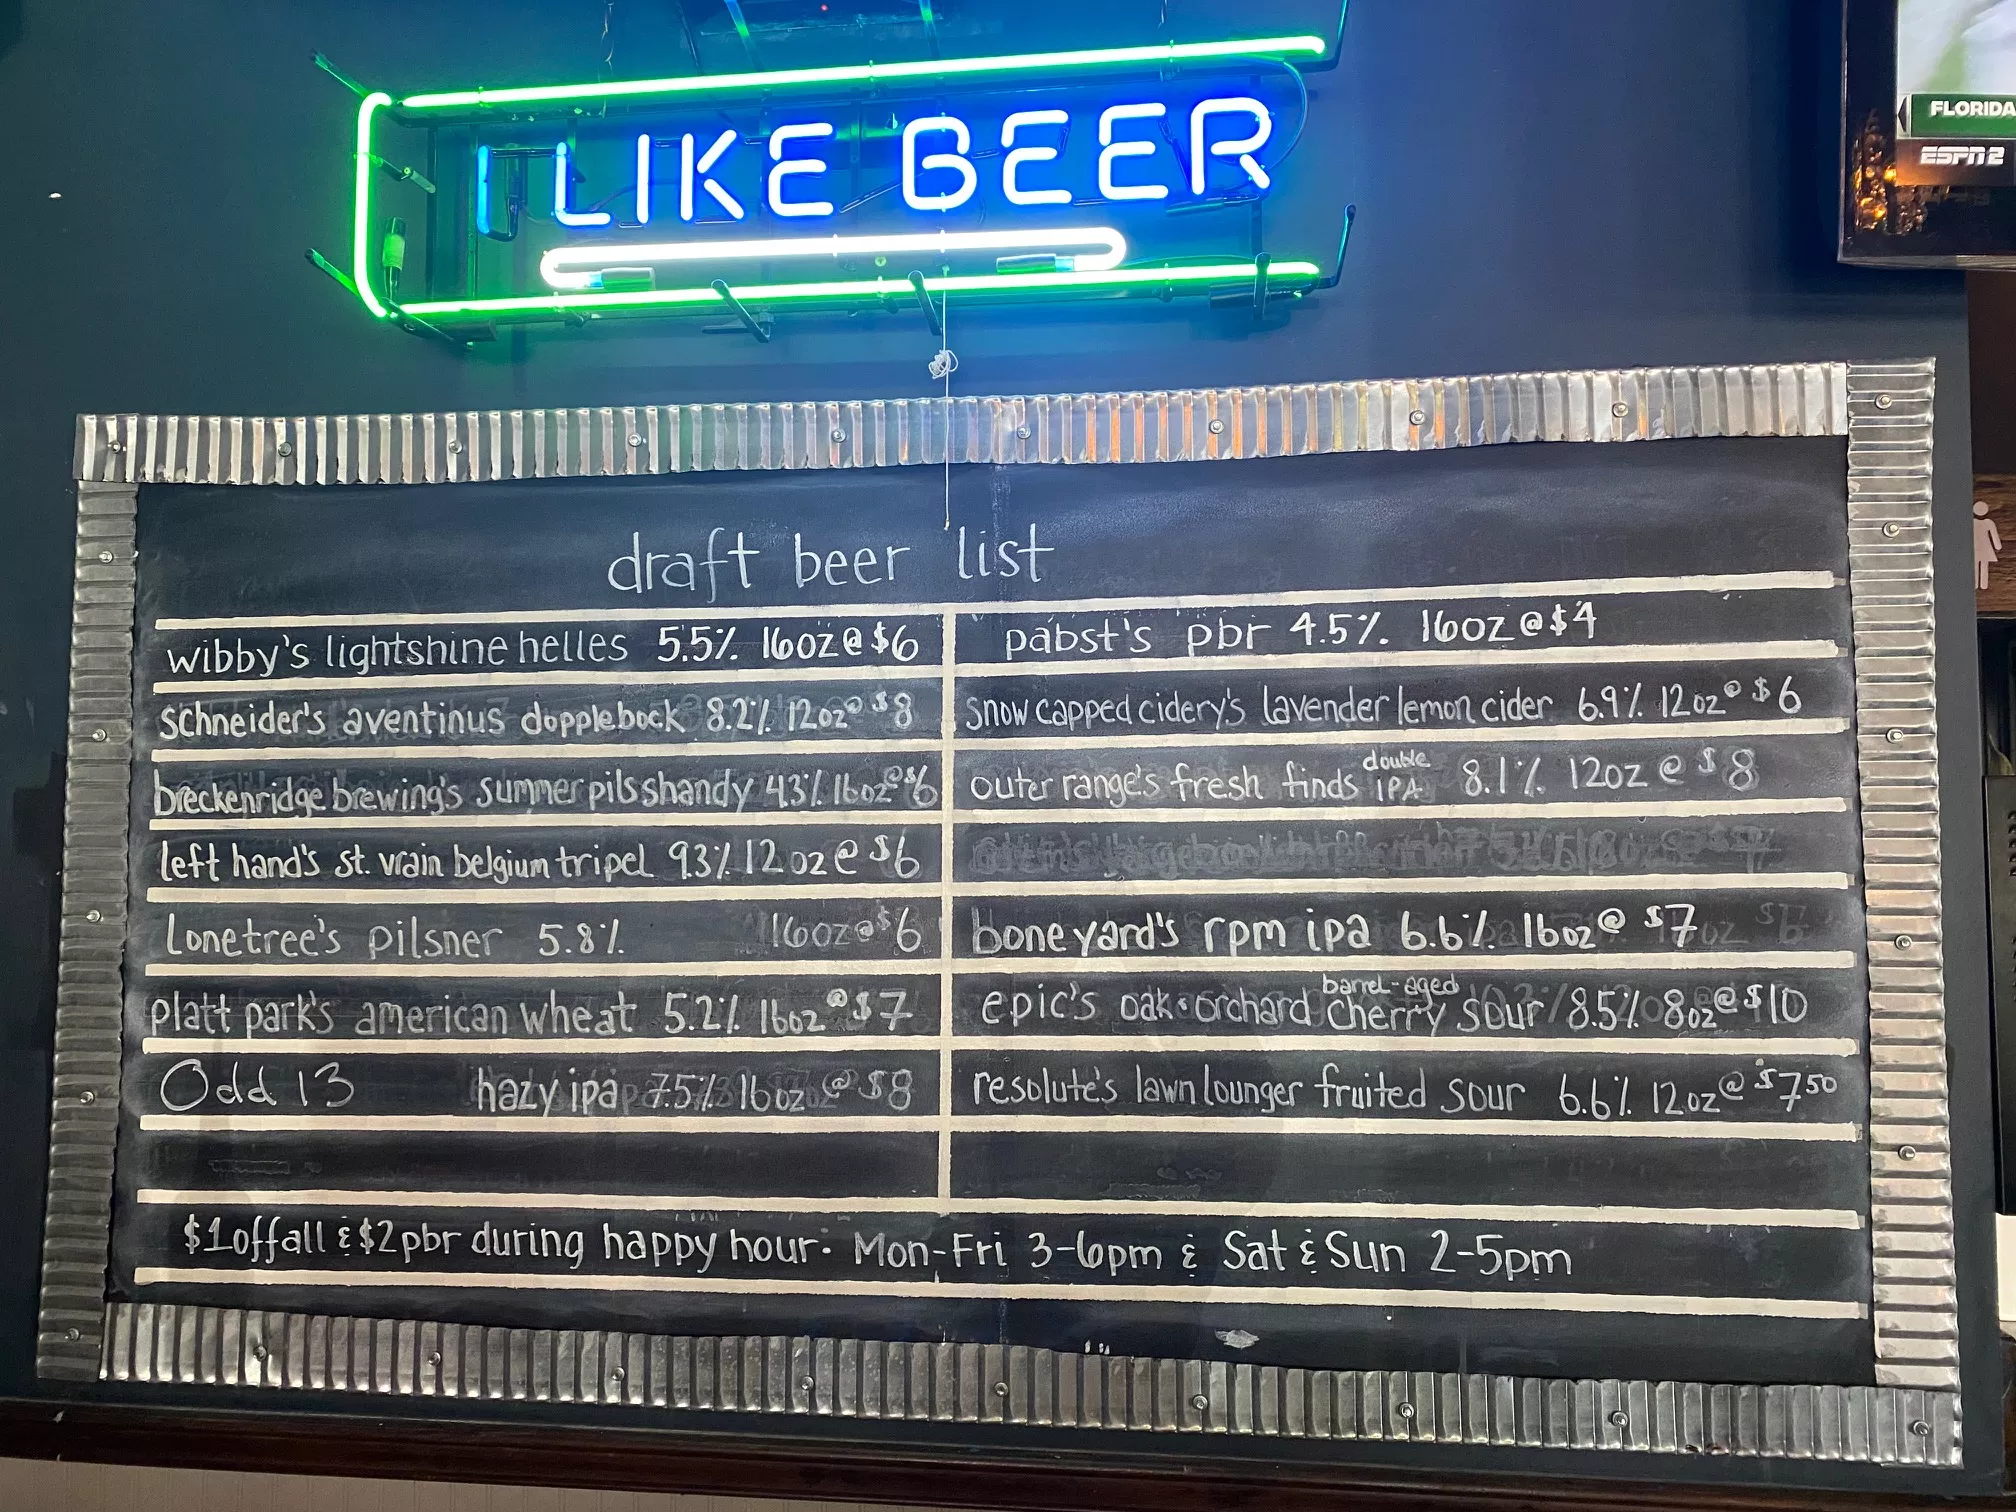 I LIKE BEER
FLORIDA
ESPN2
draft beer list
wibby's lightshine helles 5.5% 16oz @ $6
schneider's aventinus dopplebock 8.2% 12oz @ $8
breckenridge brewing's summer pils shandy 4.3% 16oz @ $6
left hand's st. vrain belgium tripel 9.3% 12oz @ $6
Lonetree's pilsner 5.8% 16oz @ $6
platt park's american wheat 5.2% 16oz @ $7
Odd 13 hazy ipa 7.5% 16oz @ $8
pabst's pbr 4.5% 16oz @ $4
snow capped cidery's lavender lemon cider 6.9% 12oz @ $6
outer range's fresh finds double IPA 8.1% 12oz @ $8
boneyard's rpm ipa 6.6% 16oz @ $7
epic's oak & orchard barrel-aged cherry sour 8.5% 8oz @ $10
resolute's lawn lounger fruited sour 6.6% 12oz @ $7.50
$1 off all & $2 pbr during happy hour: Mon-Fri 3-6pm & Sat & Sun 2-5pm